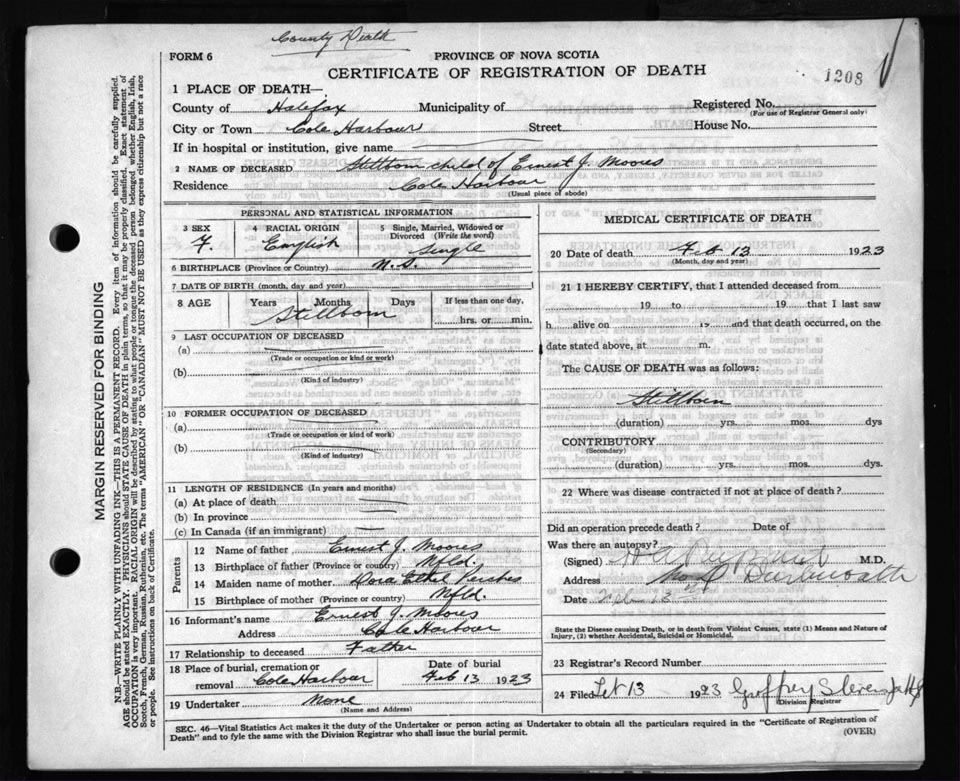 County Death
FORM 6
PROVINCE OF NOVA SCOTIA
CERTIFICATE OF REGISTRATION OF DEATH
1208
1 PLACE OF DEATH—
County of Halifax Municipality of Registered No.
(For use of Registrar General only)
City or Town Cole Harbour Street House No.
If in hospital or institution, give name
2 NAME OF DECEASED Stillborn child of Ernest J. Moores
Residence Cole Harbour
(Usual place of abode)
PERSONAL AND STATISTICAL INFORMATION
3 SEX 4 RACIAL ORIGIN 5 Single, Married, Widowed or Divorced (Write the word)
F. English Single
6 BIRTHPLACE (Province or Country) N.S.
7 DATE OF BIRTH (month, day and year)
8 AGE Years Months Days If less than one day,
Stillborn hrs. or min.
9 LAST OCCUPATION OF DECEASED
(a)
(Trade or occupation or kind of work)
(b)
(Kind of industry)
10 FORMER OCCUPATION OF DECEASED
(a)
(Trade or occupation or kind of work)
(b)
(Kind of industry)
11 LENGTH OF RESIDENCE (In years and months)
(a) At place of death
(b) In province
(c) In Canada (if an immigrant)
Parents
12 Name of father Ernest J. Moores
13 Birthplace of father (Province or country) Nfld.
14 Maiden name of mother Dora Ethel
15 Birthplace of mother (Province or country) Nfld.
16 Informant's name Ernest J. Moores
Address Cole Harbour
17 Relationship to deceased Father
18 Place of burial, cremation or removal Cole Harbour Date of burial Feb 13 1923
19 Undertaker None
(Name and Address)
MEDICAL CERTIFICATE OF DEATH
20 Date of death Feb 13 1923
(Month, day and year)
21 I HEREBY CERTIFY, that I attended deceased from
19 to 19 that I last saw
h alive on 19 and that death occurred, on the
date stated above, at m.
The CAUSE OF DEATH was as follows:
Stillborn
(duration) yrs. mos. dys
CONTRIBUTORY
(Secondary)
(duration) yrs. mos. dys.
22 Where was disease contracted if not at place of death?
Did an operation precede death? Date of
Was there an autopsy?
(Signed) M.D.
Address
Date Feb 13
State the Disease causing Death, or in death from Violent Causes, state (1) Means and Nature of
Injury, (2) whether Accidental, Suicidal or Homicidal.
23 Registrar's Record Number
24 Filed Feb 13 1923 Geoffrey Stevens
Division Registrar
SEC. 46—Vital Statistics Act makes it the duty of the Undertaker or person acting as Undertaker to obtain all the particulars required in the "Certificate of Registration of
Death" and to fyle the same with the Division Registrar who shall issue the burial permit. (OVER)
MARGIN RESERVED FOR BINDING
N.B.—WRITE PLAINLY WITH UNFADING INK—THIS IS A PERMANENT RECORD. Every item of information should be carefully supplied.
AGE should be stated EXACTLY. PHYSICIANS should STATE CAUSE OF DEATH in plain terms, so that it may be properly classified. Exact statement of
OCCUPATION is very important. RACIAL ORIGIN will be described by stating to what people or tongue the deceased person belonged, whether English, Irish,
Scotch, French, German, Russian, Ruthenian, etc. The terms "AMERICAN" OR "CANADIAN" MUST NOT BE USED as they express citizenship but not a race
or people. See instructions on back of Certificate.